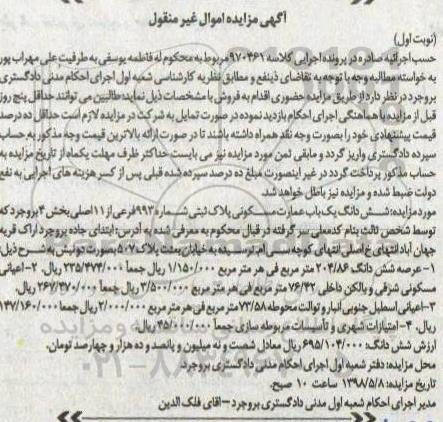 آگهی مزایده اموال غیر منقول
(نوبت اول)
حسب اجرائیه صادره در پرونده اجرایی کلاسه ۹۷۰۴۶۱ مربوط به محکوم له فاطمه یوسفی به طرفیت علی مهراب پور
به خواسته مطالبه وجه با توجه به تقاضای ذینفع و مطابق نظریه کارشناسی شعبه اول اجرای احکام مدنی دادگستری
بروجرد در نظر دارد از طریق مزایده حضوری اقدام به فروش با مشخصات ذیل نماید طالبین می توانند حداقل پنج روز
قبل از مزایده با هماهنگی اجرای احکام بازدید نموده در صورت تمایل به شرکت در مزایده لازم است حداقل ده درصد
قیمت پیشنهادی خود را بصورت وجه نقد همراه داشته باشند تا در صورت ارائه بالاترین قیمت وجه مذکور به حساب
سپرده دادگستری واریز گردد و مابقی ثمن مورد مزایده نیز می بایست حداکثر ظرف مهلت یکماه از تاریخ مزایده به
حساب مذکور پرداخت گردد در غیر اینصورت مبلغ ده درصد سپرده شده قبلی پس از کسر هزینه های اجرایی به نفع
دولت ضبط شده و مزایده نیز باطل خواهد شد.
مورد مزایده: شش دانگ یک باب عمارت مسکونی پلاک ثبتی شماره ۹۹۳ فرعی از ۱۱ اصلی بخش ۴ بروجرد که
توسط شخص ثالث بنام کدمعلی سر گرفته در قبال محکوم به معرفی شده به آدرس: ابتدای جاده بروجرد اراک قریه
جهان آباد انتهای خ اصلی انتهای کوچه به خیابان بعثت پلاک ۵۰۷ بصورت دونبش به شرح ذیل:
۱- عرصه شش دانگ ۲۰۴/۸۶ متر مربع فی هر متر مربع ۱/۱۵۰/۰۰۰ ریال جمعا ۲۳۵/۴۷۴/۰۰۰ ریال. ۲- اعیانی
مسکونی شرقی و بالکن داخلی ۷۶/۴۲ متر مربع فی هر متر مربع ۳/۵۰۰/۰۰۰ ریال جمعا ۲۶۷/۴۷۰/۰۰۰ ریال.
۳- اعیانی اسطبل جنوبی انبار و توالت محوطه ۷۳/۵۸ متر مربع فی هر متر مربع ۲/۰۰۰/۰۰۰ ریال جمعا ۱۴۷/۱۶۰/۰۰۰
ریال. ۴- امتیازات شهری و تأسیسات مربوطه سازی جمعا ۴۵/۰۰۰/۰۰۰ ریال.
ارزش شش دانگ: ۶۹۵/۱۰۴/۰۰۰ ریال معادل شصت و نه میلیون و پانصد و ده هزار و چهارصد تومان.
محل مزایده: دفتر شعبه اول اجرای احکام مدنی دادگستری بروجرد.
تاریخ مزایده: ۱۳۹۸/۵/۸ ساعت ۱۰ صبح.
مدیر اجرای احکام شعبه اول مدنی دادگستری بروجرد - آقای فلک الدین